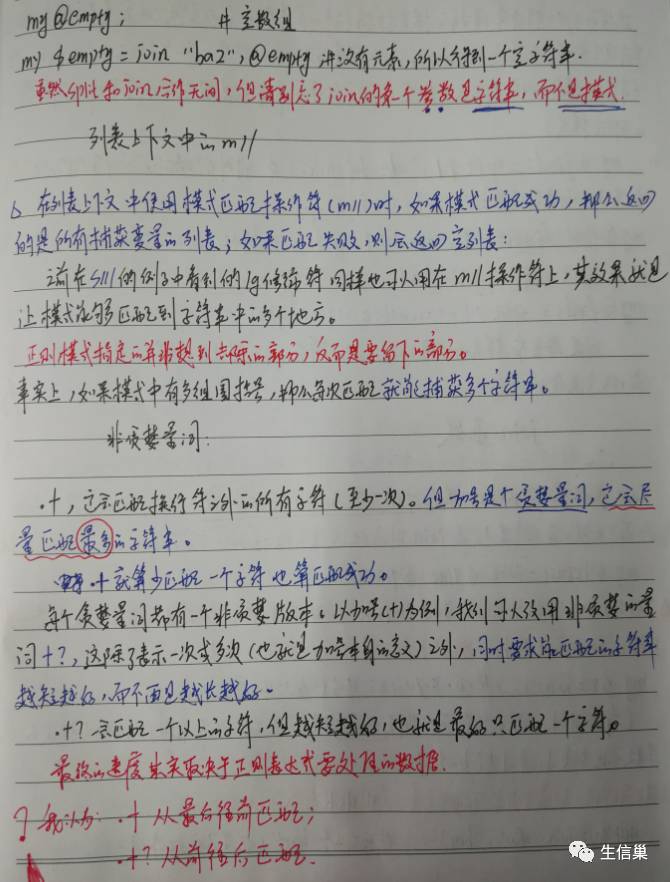 my @empty; # 空数组
my $empty = join "baz", @empty; # 没有元素,所以得到一个空字符串.
虽然split和join合作无间,但请别忘了join的第一个参数是字符串,而不是模式.
列表上下文中的m//
在列表上下文中使用模式匹配操作符(m//)时,如果模式匹配成功,那么返回
的是所有捕获变量的列表;如果匹配失败,则会返回空列表:
之前在s///的例子中看到的/g修饰符同样也可以用在m//操作符上,其效果就是
让模式能够匹配到字符串中的多个地方。
正则模式指定的并非想到去除的部分,反而是要留下的部分。
事实上,如果模式中有多组圆括号,那么每次匹配就能捕获多个字符串。
非贪婪量词:
.+,它会匹配换行符之外的所有字符(至少一次)。但加号是个贪婪量词,它会尽
量匹配最多的字符串。
.+就算少匹配一个字符也算匹配成功。
每个贪婪量词都有一个非贪婪版本。以加号(+)为例,我们可以改用非贪婪的量
词+?,这除了表示一次或多次(也就是加号本身的意义)之外,同时要求能匹配的字符串
越短越好,而不再是越长越好。
.+?会匹配一个以上的字符,但越短越好,也就是最好只匹配一个字符。
最终的速度快实取决于正则表达式要处理的数据.
? 我认为: .+ 从最后往前匹配;
.+? 从前往后匹配.
生信巢